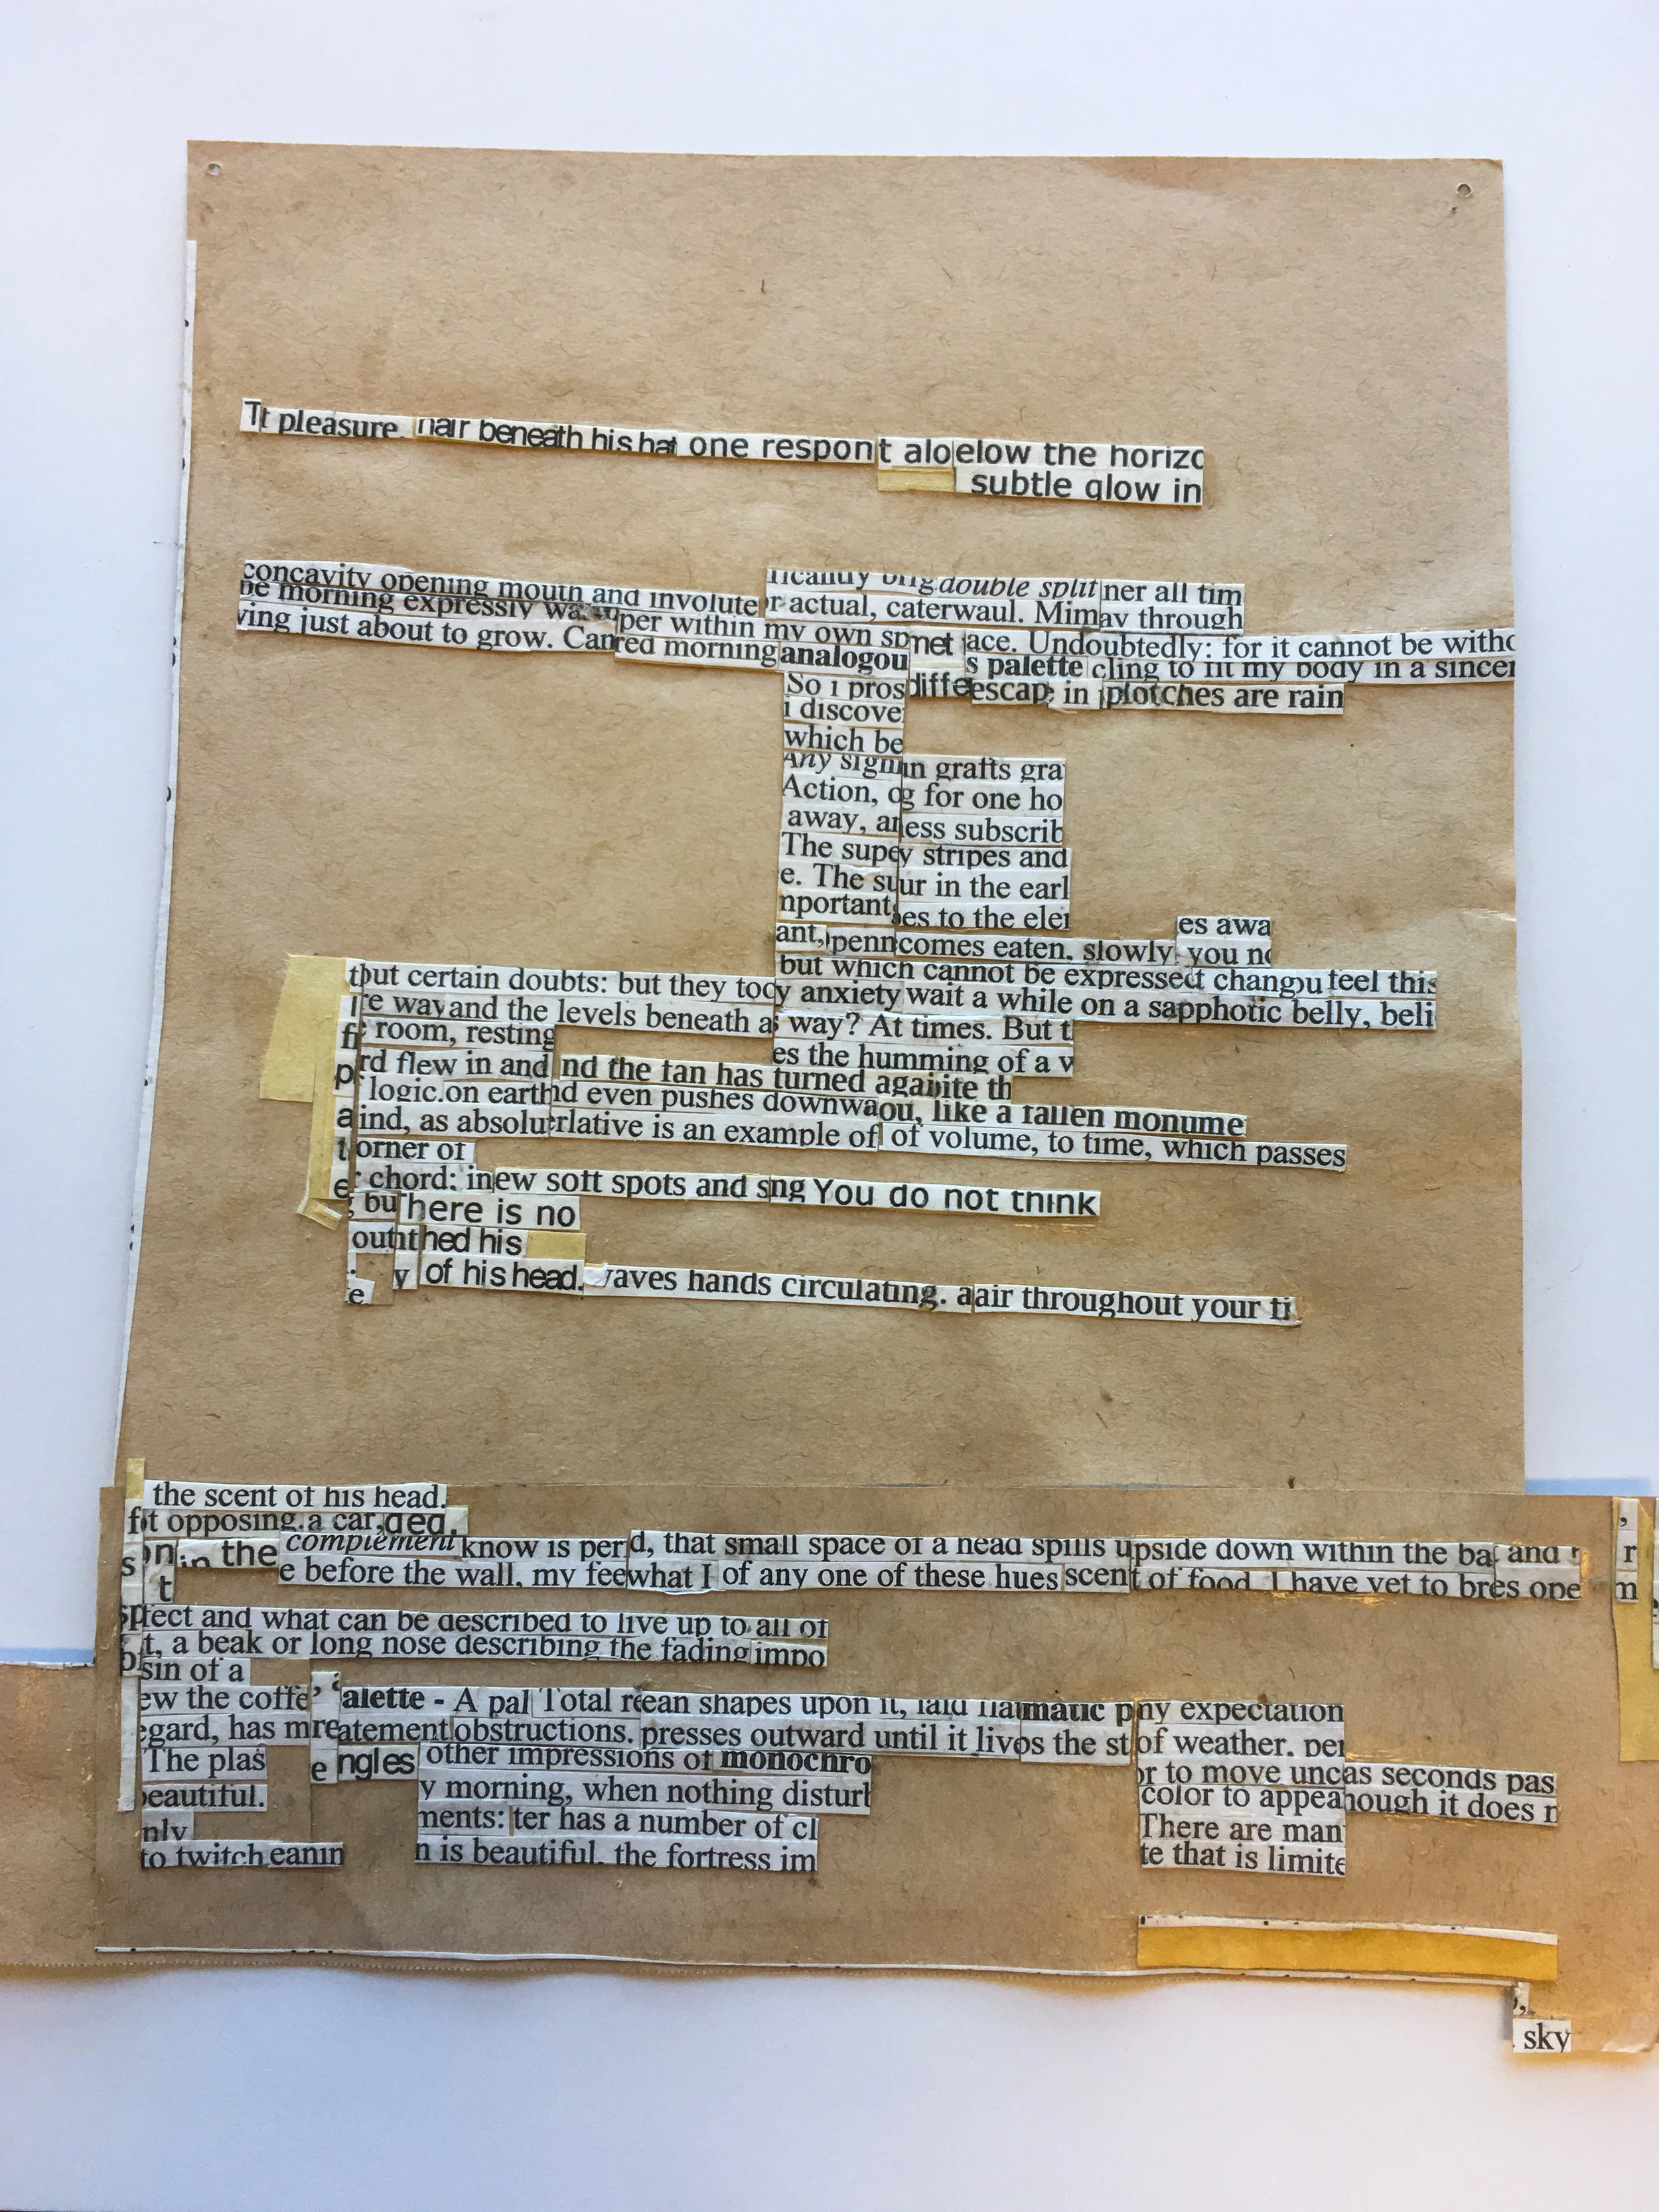 Tt pleasure. hair beneath his hat one respont aloelow the horizo
subtle glow in
concavity opening mouth and involute
double split ner all tim
be morning expressly
r actual, caterwaul. Mimay through
per within my own spmet ace. Undoubtedly: for it cannot be witho
ving just about to grow. Canred morning analogou s palette cling to fit my body in a sincer
So i pros diffeescap in plotches are rain
i discove
which be
Any signin grafts gra
Action, og for one ho
away, aness subscrib
The supey stripes and
e. The suur in the earl
nportant es to the eler
es awa
ant, penncomes eaten. slowly you no
but which cannot be expressed changou feel this
tbut certain doubts: but they tocy anxiety wait a while on a sapphotic belly, beli
re way and the levels beneath as way? At times. But t
room, resting
es the humming of a v
rd flew in and nd the tan has turned againite th
logic.on earthd even pushes downwaou, like a fallen monume
a ind, as absoluerlative is an example of of volume, to time, which passes
t orner of
e chord: inew soft spots and sng You do not think
bu here is no
ouththed his
y of his head. vaves hands circulating. aair throughout your ti
e
the scent of his head.
t opposing.a car,
in the complement know is perd, that small space of a head spills upside down within the ba and r
s
t e before the wall, my feewhat I of any one of these hues scent of food. I have yet to bres one m
spfect and what can be described to live up to all of
t, a beak or long nose describing the fading impo
sin of a
ew the coffe alette - A pal Total rean shapes upon it, laid flamatic pny expectation
egard, has mreatement obstructions. presses outward until it livos the stof weather. per
The plas e ngles other impressions of monochro
or to move uncas seconds pas
beautiful. y morning, when nothing disturb
color to appeahough it does n
nly
ments: ter has a number of cl
There are man
to twitch eanin n is beautiful. the fortress im
te that is limite
sky